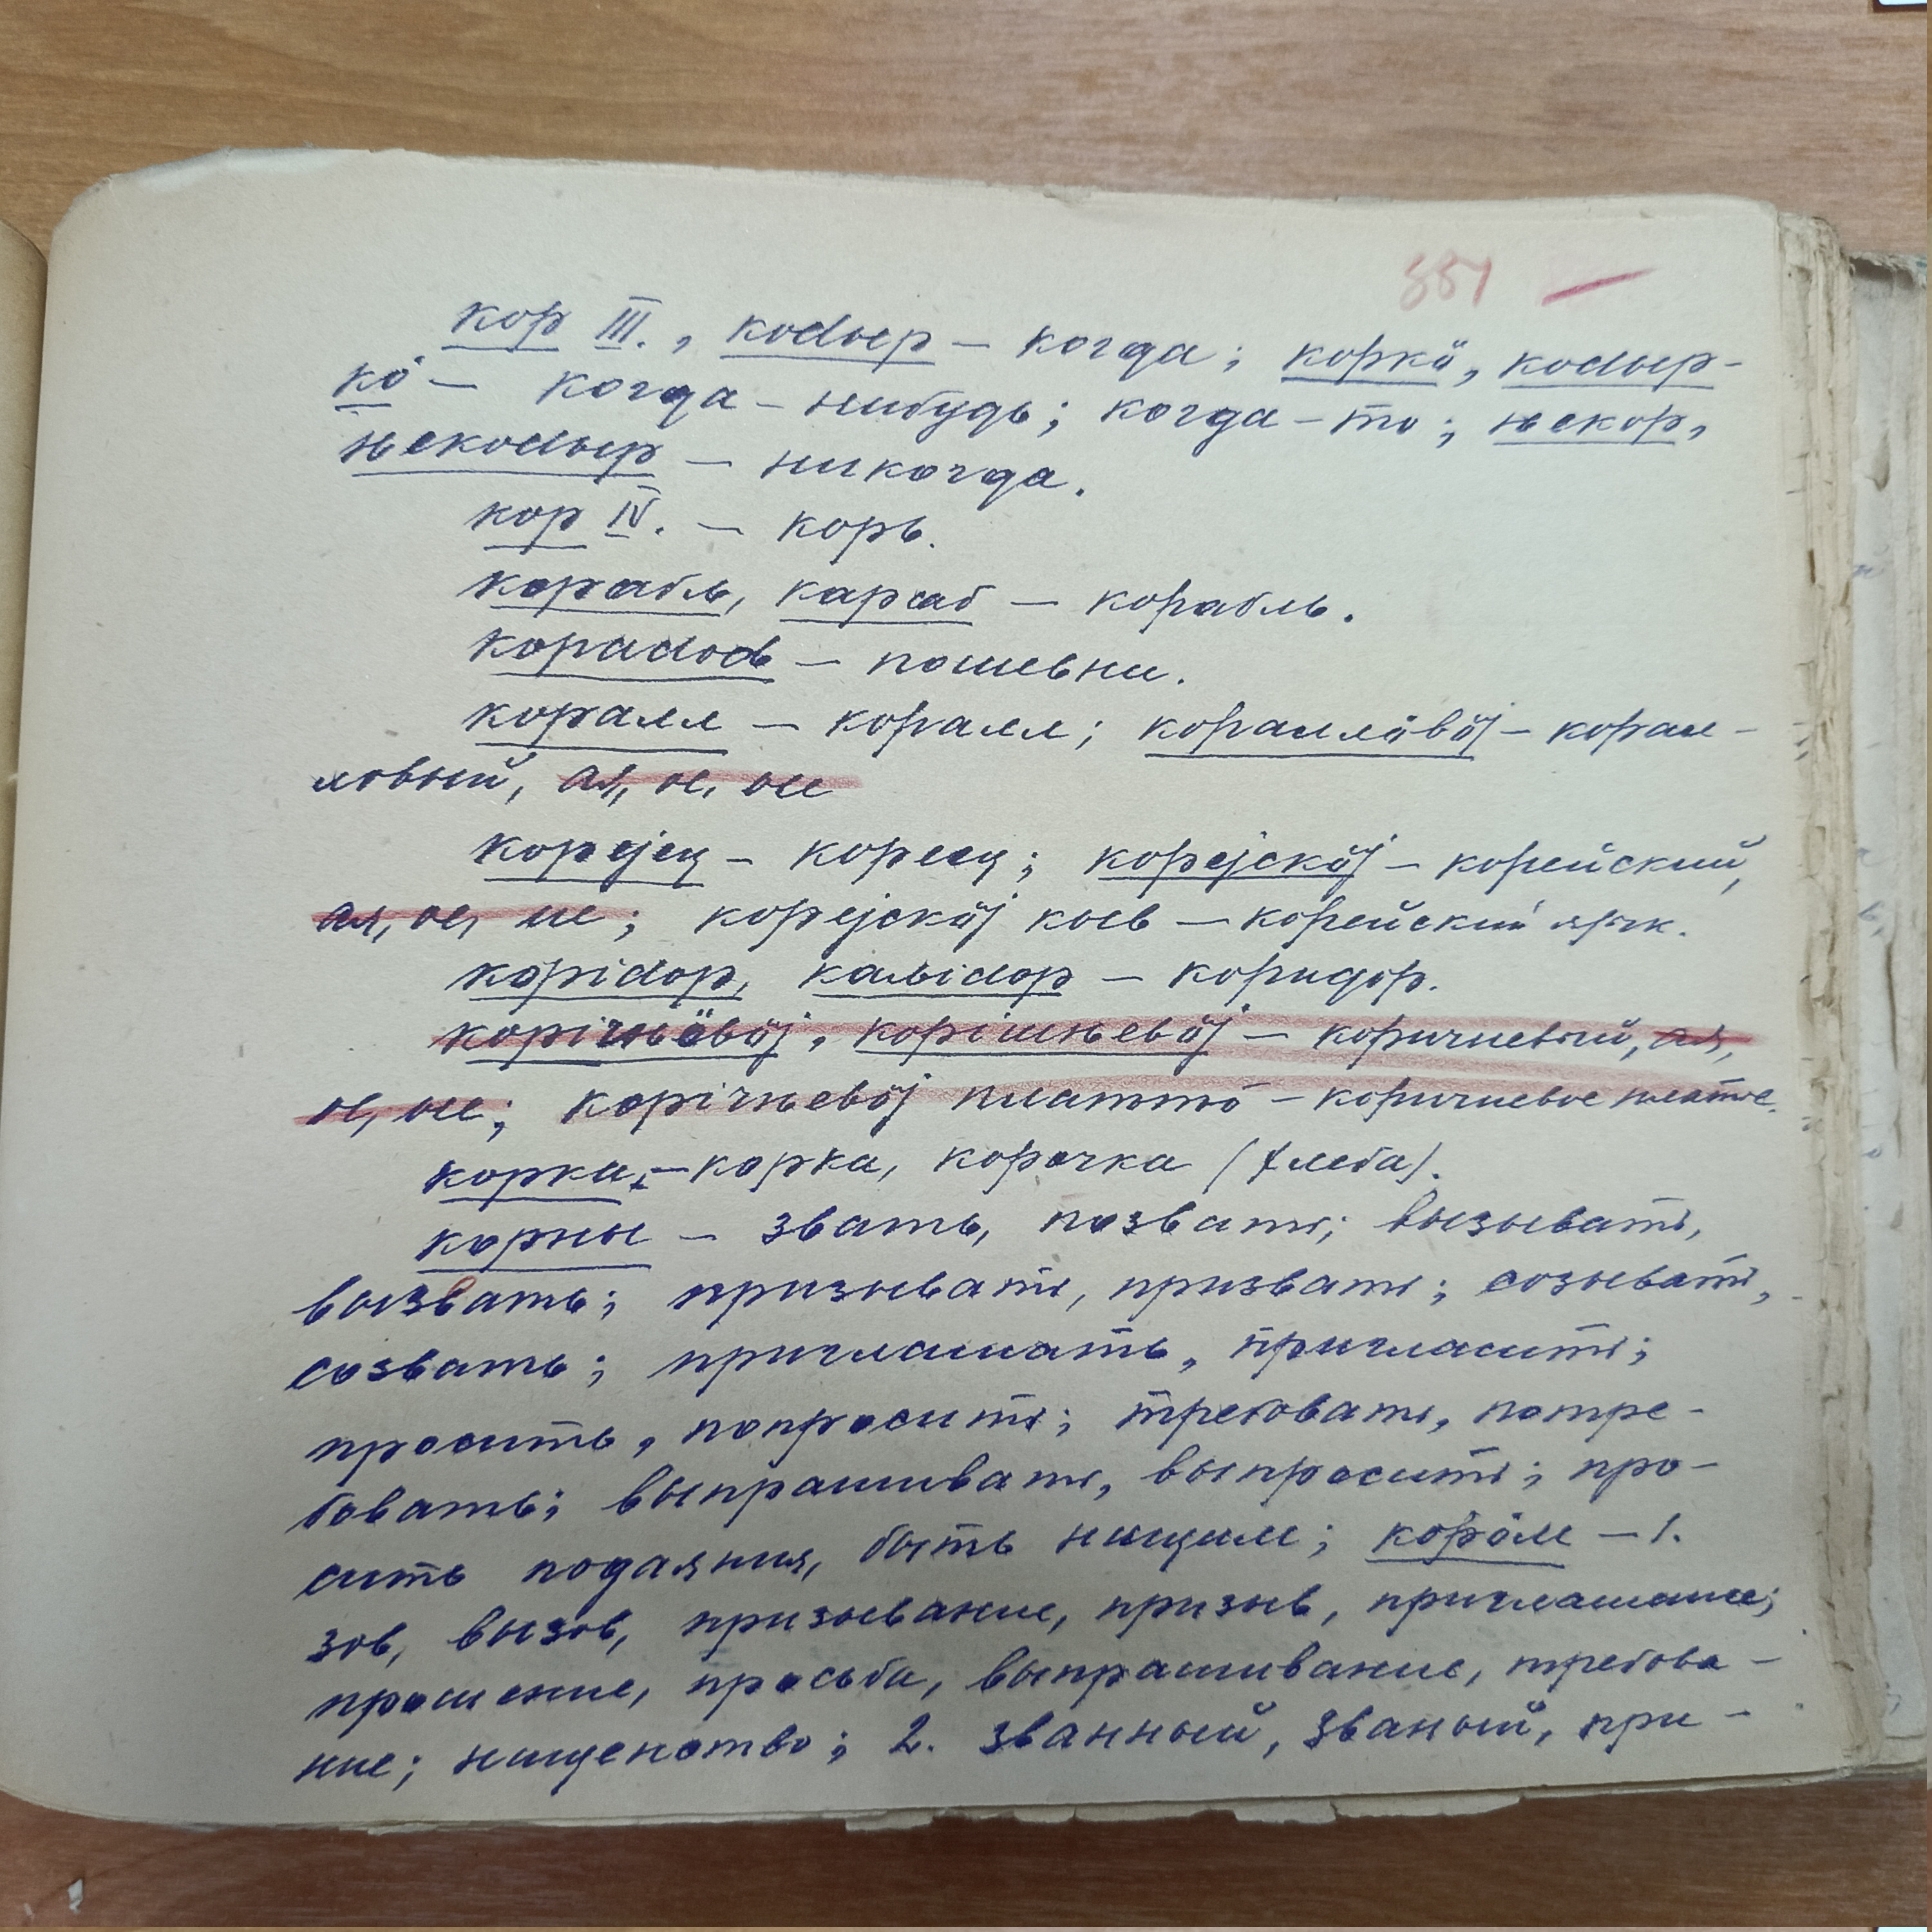 551 —
кор III., кодыр – когда; коркӧ, кодыр-
кӧ – когда-нибудь; когда-то; њекор,
њекодыр – никогда.
кор IV. – корь.
корабль, караб – корабль.
корадод – пошевни.
коралл – коралл; коралловӧј – корал-
ловый, ая, ое, ые
корејец – кореец; корејскӧј – корейский,
ая, ое, ие; корејскӧј кыв – корейский язык.
корідор, каљідор – коридор.
корічњӧвӧј, корішњевӧј – коричневый, ая,
ое, ые; корічњевӧј платтӧ – коричневое платье.
корка, – корка, корочка (хлеба).
корны – звать, позвать; вызывать,
вызвать; призывать, призвать; созывать,
созвать; приглашать, пригласить;
просить, попросить; требовать, потре-
бовать; выпрашивать, выпросить; про-
сить подаяния, быть нищим; корӧм – 1.
зов, вызов, призывание, призыв, приглашание;
прошение, просьба, выпрашивание, требова-
ние; нищенство; 2. званный, званый, при-